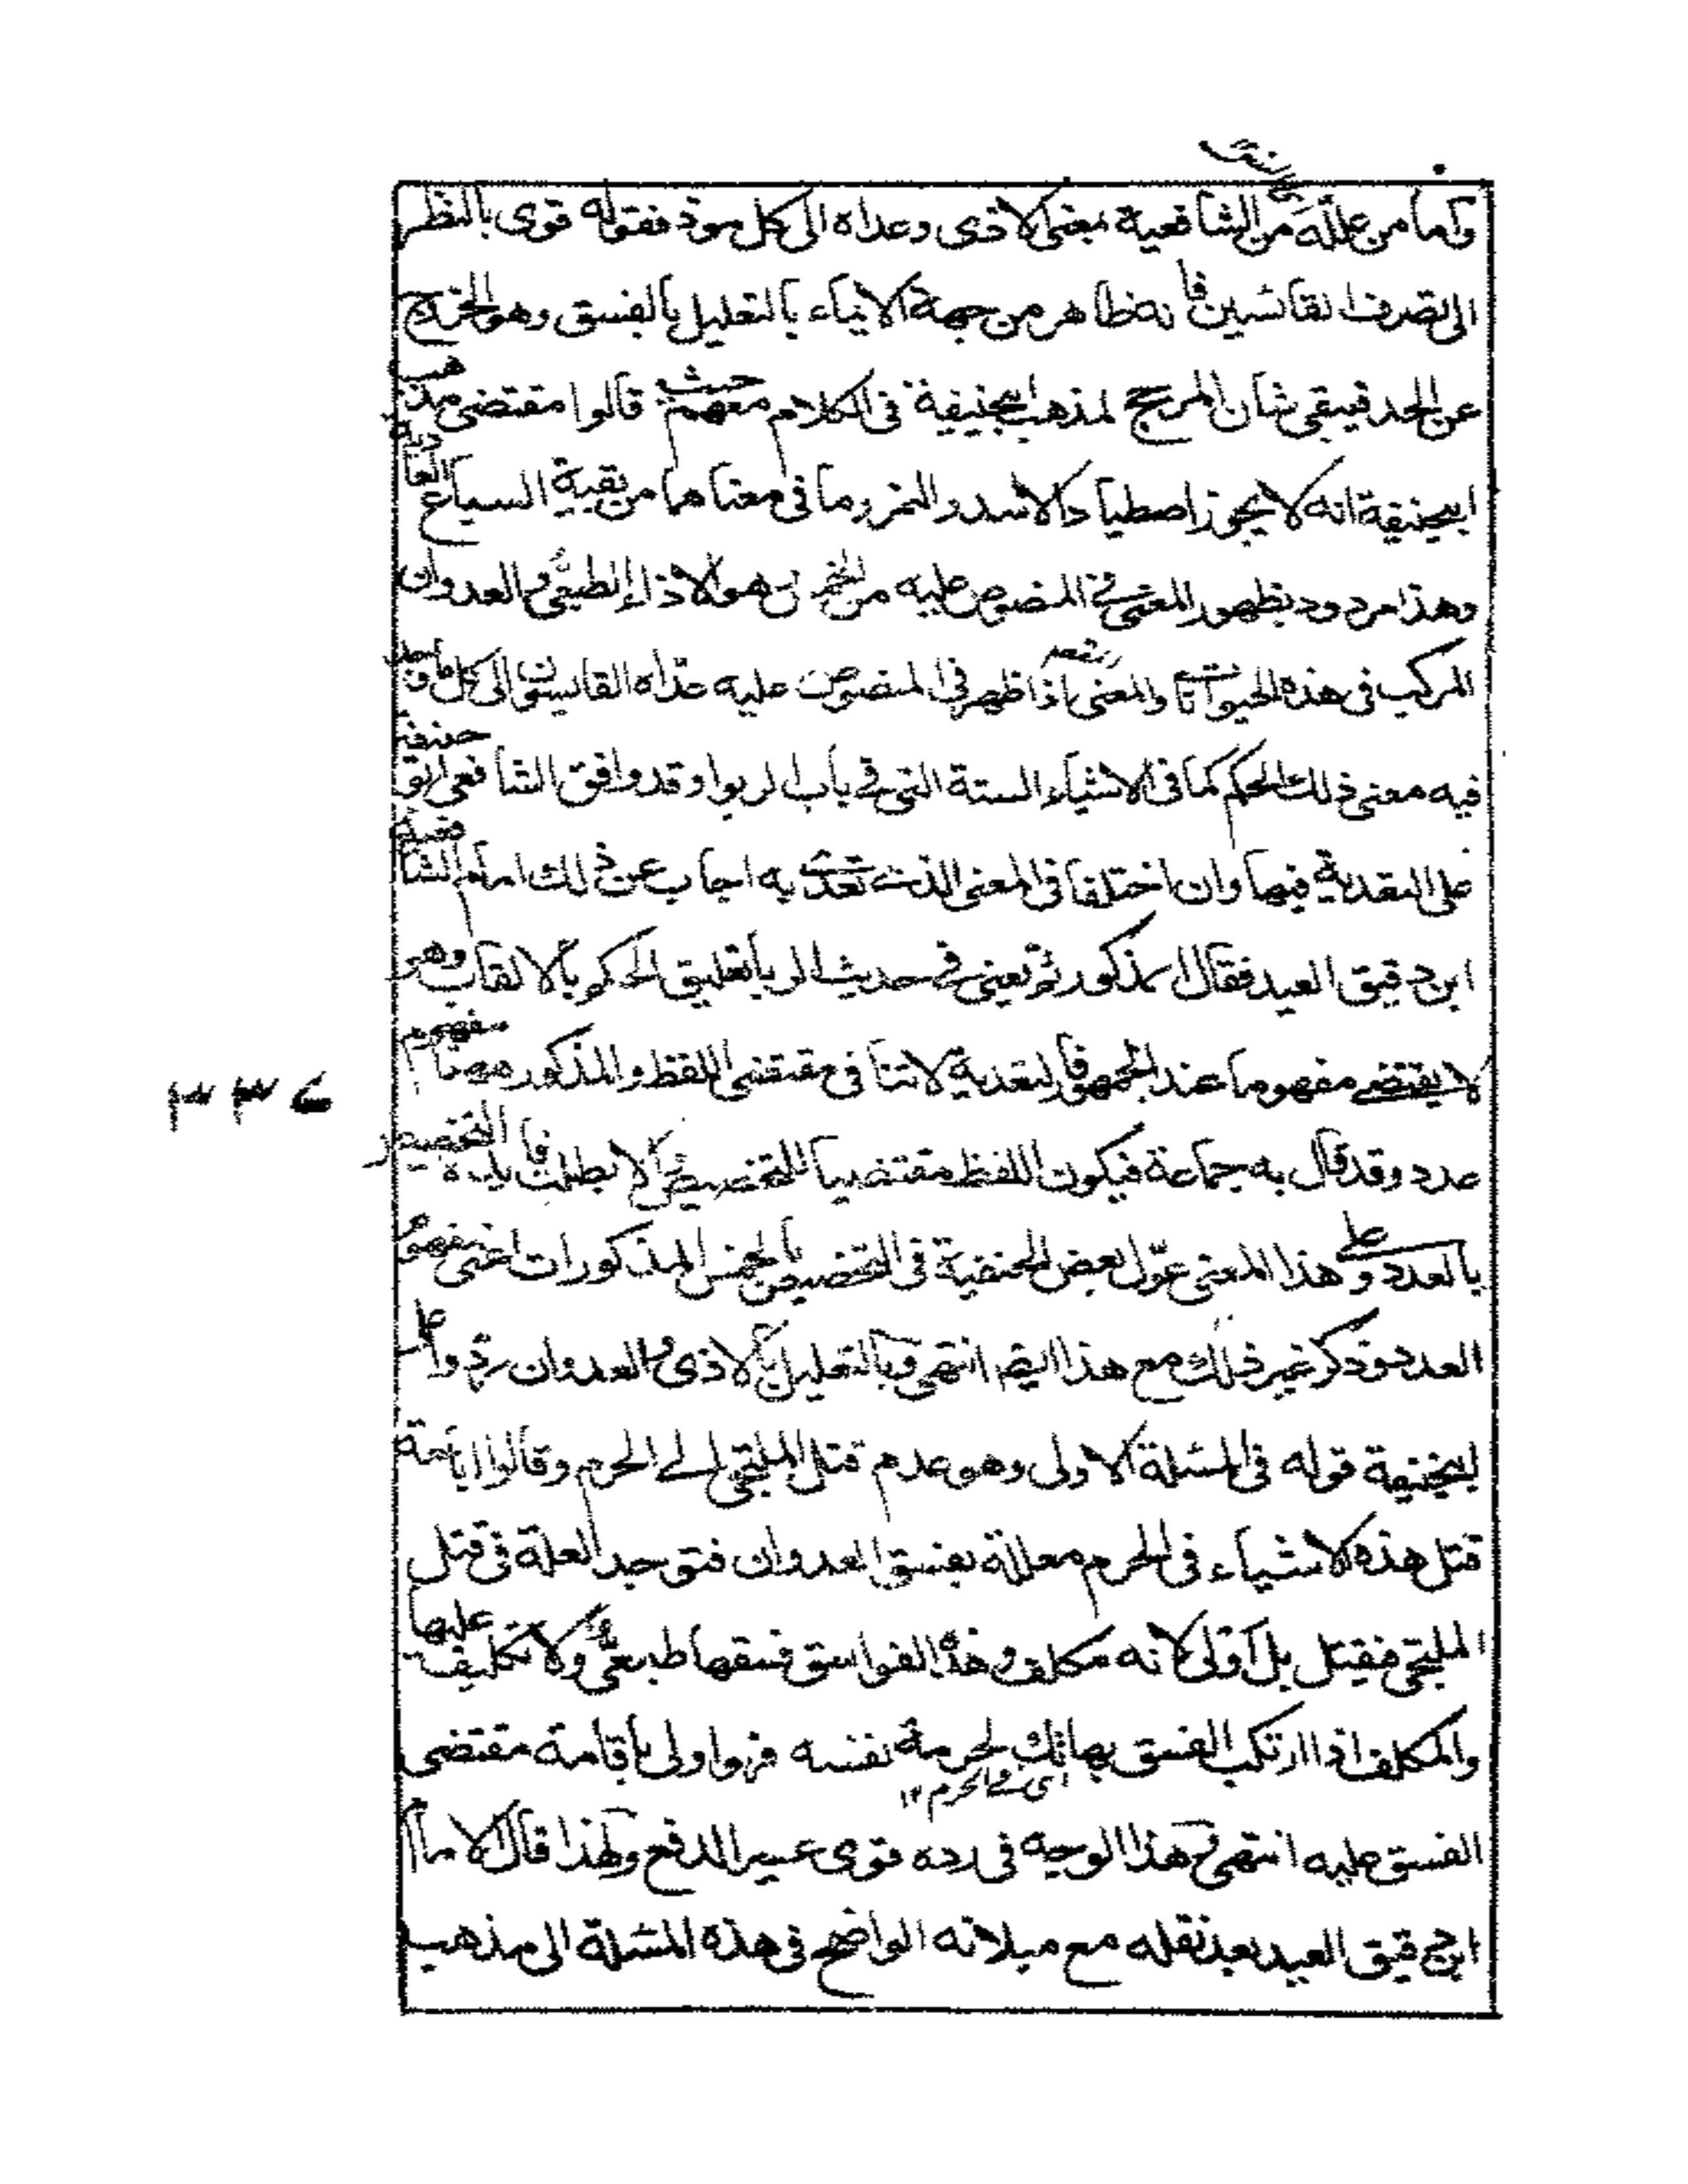 واما من علله من الشافعية بمعنى الاذى وعداه الى كل موذ فقوله قوى بالنظر
الى تصرف القائسين فانه ظاهر من جهة الايماء بالتعليل بالفسق وهو الخروج
عن الحد فيبقى شان المرجح لمذهب ابيحنيفة فى الكلام معهم حيث قالوا مقتضى مذهب
ابيحنيفة انه لا يجوز اصطياد الاسد والنمر وما فى معناهما من بقية السباع العادية
وهذا مردود بظهور المعنى فى المنصوص عليه من الخمس هو الاذاء الطبيعى والعدوان
المركب فى هذه الحيوانات والمعنى اذا ظهر فى المنصوص عليه عداه القايسون الى كل ما وجد
فيه معنى ذلك الحكم كما فى الاشياء الستة التى فى باب الربوا وقد وافق الشافعى ابو حنيفة
على التعدية فيها وان اختلفا فى المعنى الذى تعدى به اجاب عن ذلك امام الشافعية
ابن دقيق العيد فقال المذكور ثم يعنى فى حديث الربا تعليق الحكم بالالقاب وهو
لا يقتضى مفهوما عند الجمهور فالتعدية لا تنا فى مقتضى اللفظ والمذكور ههنا مفهوم
عدد وقد قال به جماعة فيكون اللفظ مقتضيا للتخصيص والا بطلت فايدة التخصيص
بالعدد وعلى هذا المعنى عوّل بعض الحنفية فى التخصيص بالخمس المذكورات اعنى مفهوم
العدد وذكر غير ذلك مع هذا ايضا انتهى وبالتعليل بالاذى والعدوان ردوا على
ابيحنيفة قوله فى المسئلة الاولى وهو عدم قتل الملتجى الى الحرم وقالوا اباحة
قتل هذه الاشياء فى الحرم معللة بفسق العدوان فتوجد العلة فى قتل
الملتجى فيقتل بل اولى لانه مكلف وهذه الفواسق فسقها طبيعى ولا تكليف عليها
والمكلف اذا ارتكب الفسق بهاتك لحرمة نفسه فهو اولى باقامة مقتضى
اى فى الحرم ١٢
الفسق عليه انتهى وهذا الوجه فى رده قوى عسير الدفع ولهذا قال الامام
ابن دقيق العيد بعد نقله مع ميلانه الواضح فى هذه المسئلة الى مذهب
٣٣٧